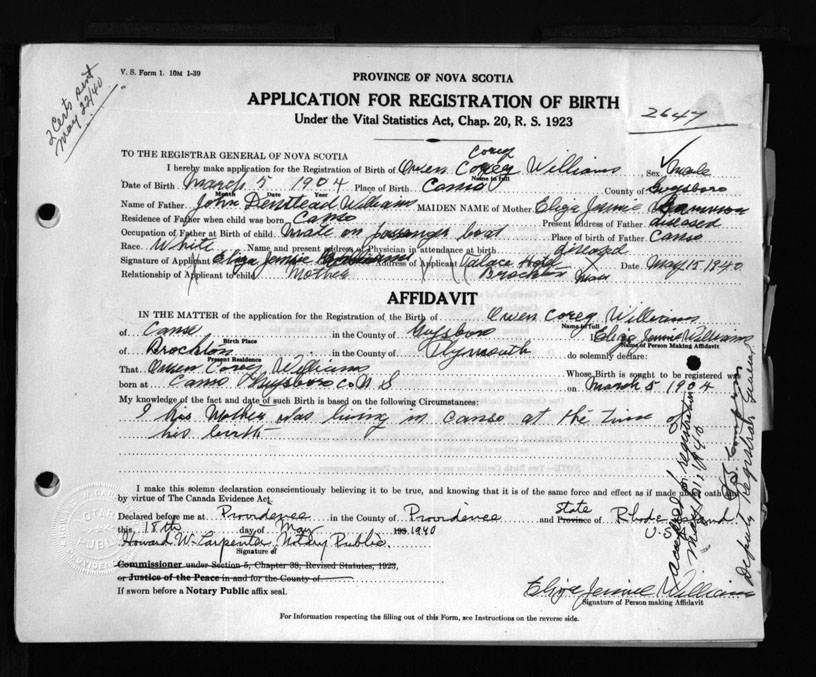 2 Certs sent
May 22/40
V. S. Form 1. 10M 1-39
PROVINCE OF NOVA SCOTIA
APPLICATION FOR REGISTRATION OF BIRTH
Under the Vital Statistics Act, Chap. 20, R. S. 1923
2647
TO THE REGISTRAR GENERAL OF NOVA SCOTIA
Corey
I hereby make application for the Registration of Birth of Owen Corey Williams Sex Male
Name in full
Date of Birth March 5 1904 Place of Birth Canso County of Guysboro
Month Date Year
Name of Father John Williams MAIDEN NAME of Mother Eliza Jennie
Residence of Father when child was born Canso Present address of Father deceased
Occupation of Father at Birth of child. Mate on passenger boat Place of birth of Father Canso
Race. White Name and present address of Physician in attendance at birth
Signature of Applicant Eliza Jennie Address of Applicant Palace Hotel Date May 15 1940
Relationship of Applicant to child Mother Brockton Mass
AFFIDAVIT
IN THE MATTER of the application for the Registration of the Birth of Owen Corey Williams
Name in full
of Canso in the County of Guysboro Eliza Jennie Williams
Birth Place Name of Person Making Affidavit
of Brockton in the County of Plymouth do solemnly declare:
Present Residence
That Owen Corey Williams Whose Birth is sought to be registered was
born at Canso Guysboro Co N S on March 5 1904
My knowledge of the fact and date of such Birth is based on the following Circumstances:
I his Mother was living in Canso at the time of
his birth
I make this solemn declaration conscientiously believing it to be true, and knowing that it is of the same force and effect as if made under oath and
by virtue of The Canada Evidence Act.
Declared before me at Providence in the County of Providence and State Province of Rhode Island
this 18th day of May 193 1940 U.S.
Howard W. Carpenter Notary Public
Signature of
Commissioner under Section 5, Chapter 38, Revised Statutes, 1923,
or Justice of the Peace in and for the County of
If sworn before a Notary Public affix seal.
Eliza Jennie Williams
Signature of Person making Affidavit
For Information respecting the filling out of this Form, see Instructions on the reverse side.
accepted for registration
Deputy Registrar General